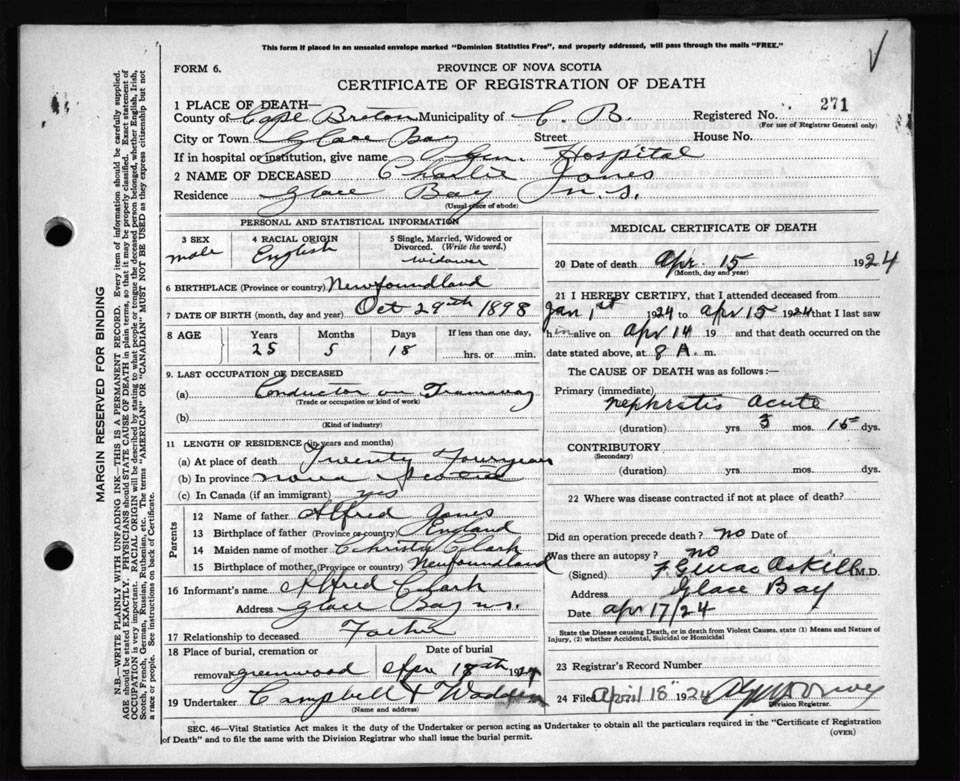 This form if placed in an unsealed envelope marked "Dominion Statistics Free", and properly addressed, will pass through the mails "FREE."
FORM 6.
PROVINCE OF NOVA SCOTIA
CERTIFICATE OF REGISTRATION OF DEATH
1 PLACE OF DEATH—
County of Cape Breton Municipality of C. B. Registered No. 271
(For use of Registrar General only)
City or Town Glace Bay Street House No.
If in hospital or institution, give name Gen. Hospital
2 NAME OF DECEASED Charlie Jones
Residence Glace Bay N.S.
(Usual place of abode)
PERSONAL AND STATISTICAL INFORMATION
3 SEX male
4 RACIAL ORIGIN English
5 Single, Married, Widowed or Divorced. (Write the word.) widower
6 BIRTHPLACE (Province or country) Newfoundland
7 DATE OF BIRTH (month, day and year) Oct 29th 1898
8 AGE Years Months Days If less than one day,
25 5 18 hrs. or min.
9. LAST OCCUPATION OF DECEASED
(a) Conductor on Tramway
(Trade or occupation or kind of work)
(b)
(Kind of industry)
11 LENGTH OF RESIDENCE (in years and months)
(a) At place of death Twenty Four years
(b) In province Nova Scotia
(c) In Canada (if an immigrant) yes
Parents
12 Name of father Alfred Jones
13 Birthplace of father (Province or country) England
14 Maiden name of mother Christy Clark
15 Birthplace of mother (Province or country) Newfoundland
16 Informant's name Alfred Clark
Address Glace Bay N.S.
17 Relationship to deceased Father
18 Place of burial, cremation or removal Greenwood
Date of burial Apr 18th 1924
19 Undertaker Campbell & Wadden
(Name and address)
MEDICAL CERTIFICATE OF DEATH
20 Date of death Apr. 15 1924
(Month, day and year)
21 I HEREBY CERTIFY, that I attended deceased from
Jan 1st 1924 to Apr 15 1924 that I last saw
him alive on Apr 14 19 and that death occurred on the
date stated above, at 8 A. m.
The CAUSE OF DEATH was as follows:—
Primary (immediate) Nephratis acute
(duration) yrs 3 mos. 15 dys.
CONTRIBUTORY
(Secondary)
(duration) yrs. mos. dys.
22 Where was disease contracted if not at place of death?
Did an operation precede death? no Date of
Was there an autopsy? no
(Signed) M.D.
Address Glace Bay
Date Apr 17/24
State the Disease causing Death, or in death from Violent Causes, state (1) Means and Nature of Injury, (2) whether Accidental, Suicidal or Homicidal
23 Registrar's Record Number
24 Filed April 18 1924
Division Registrar.
SEC. 46—Vital Statistics Act makes it the duty of the Undertaker or person acting as Undertaker to obtain all the particulars required in the "Certificate of Registration
of Death" and to file the same with the Division Registrar who shall issue the burial permit.
(OVER)
MARGIN RESERVED FOR BINDING
N.B.—WRITE PLAINLY WITH UNFADING INK—THIS IS A PERMANENT RECORD. Every item of information should be carefully supplied.
AGE should be stated EXACTLY. PHYSICIANS should STATE CAUSE OF DEATH in plain terms, so that it may be properly classified. Exact statement of
OCCUPATION is very important. RACIAL ORIGIN will be described by stating to what people or tongue the deceased person belonged, whether English, Irish,
Scotch, French, German, Russian, Ruthenian, etc. The terms "AMERICAN" or "CANADIAN" MUST NOT BE USED as they express citizenship but not
a race or people. See instructions on back of Certificate.